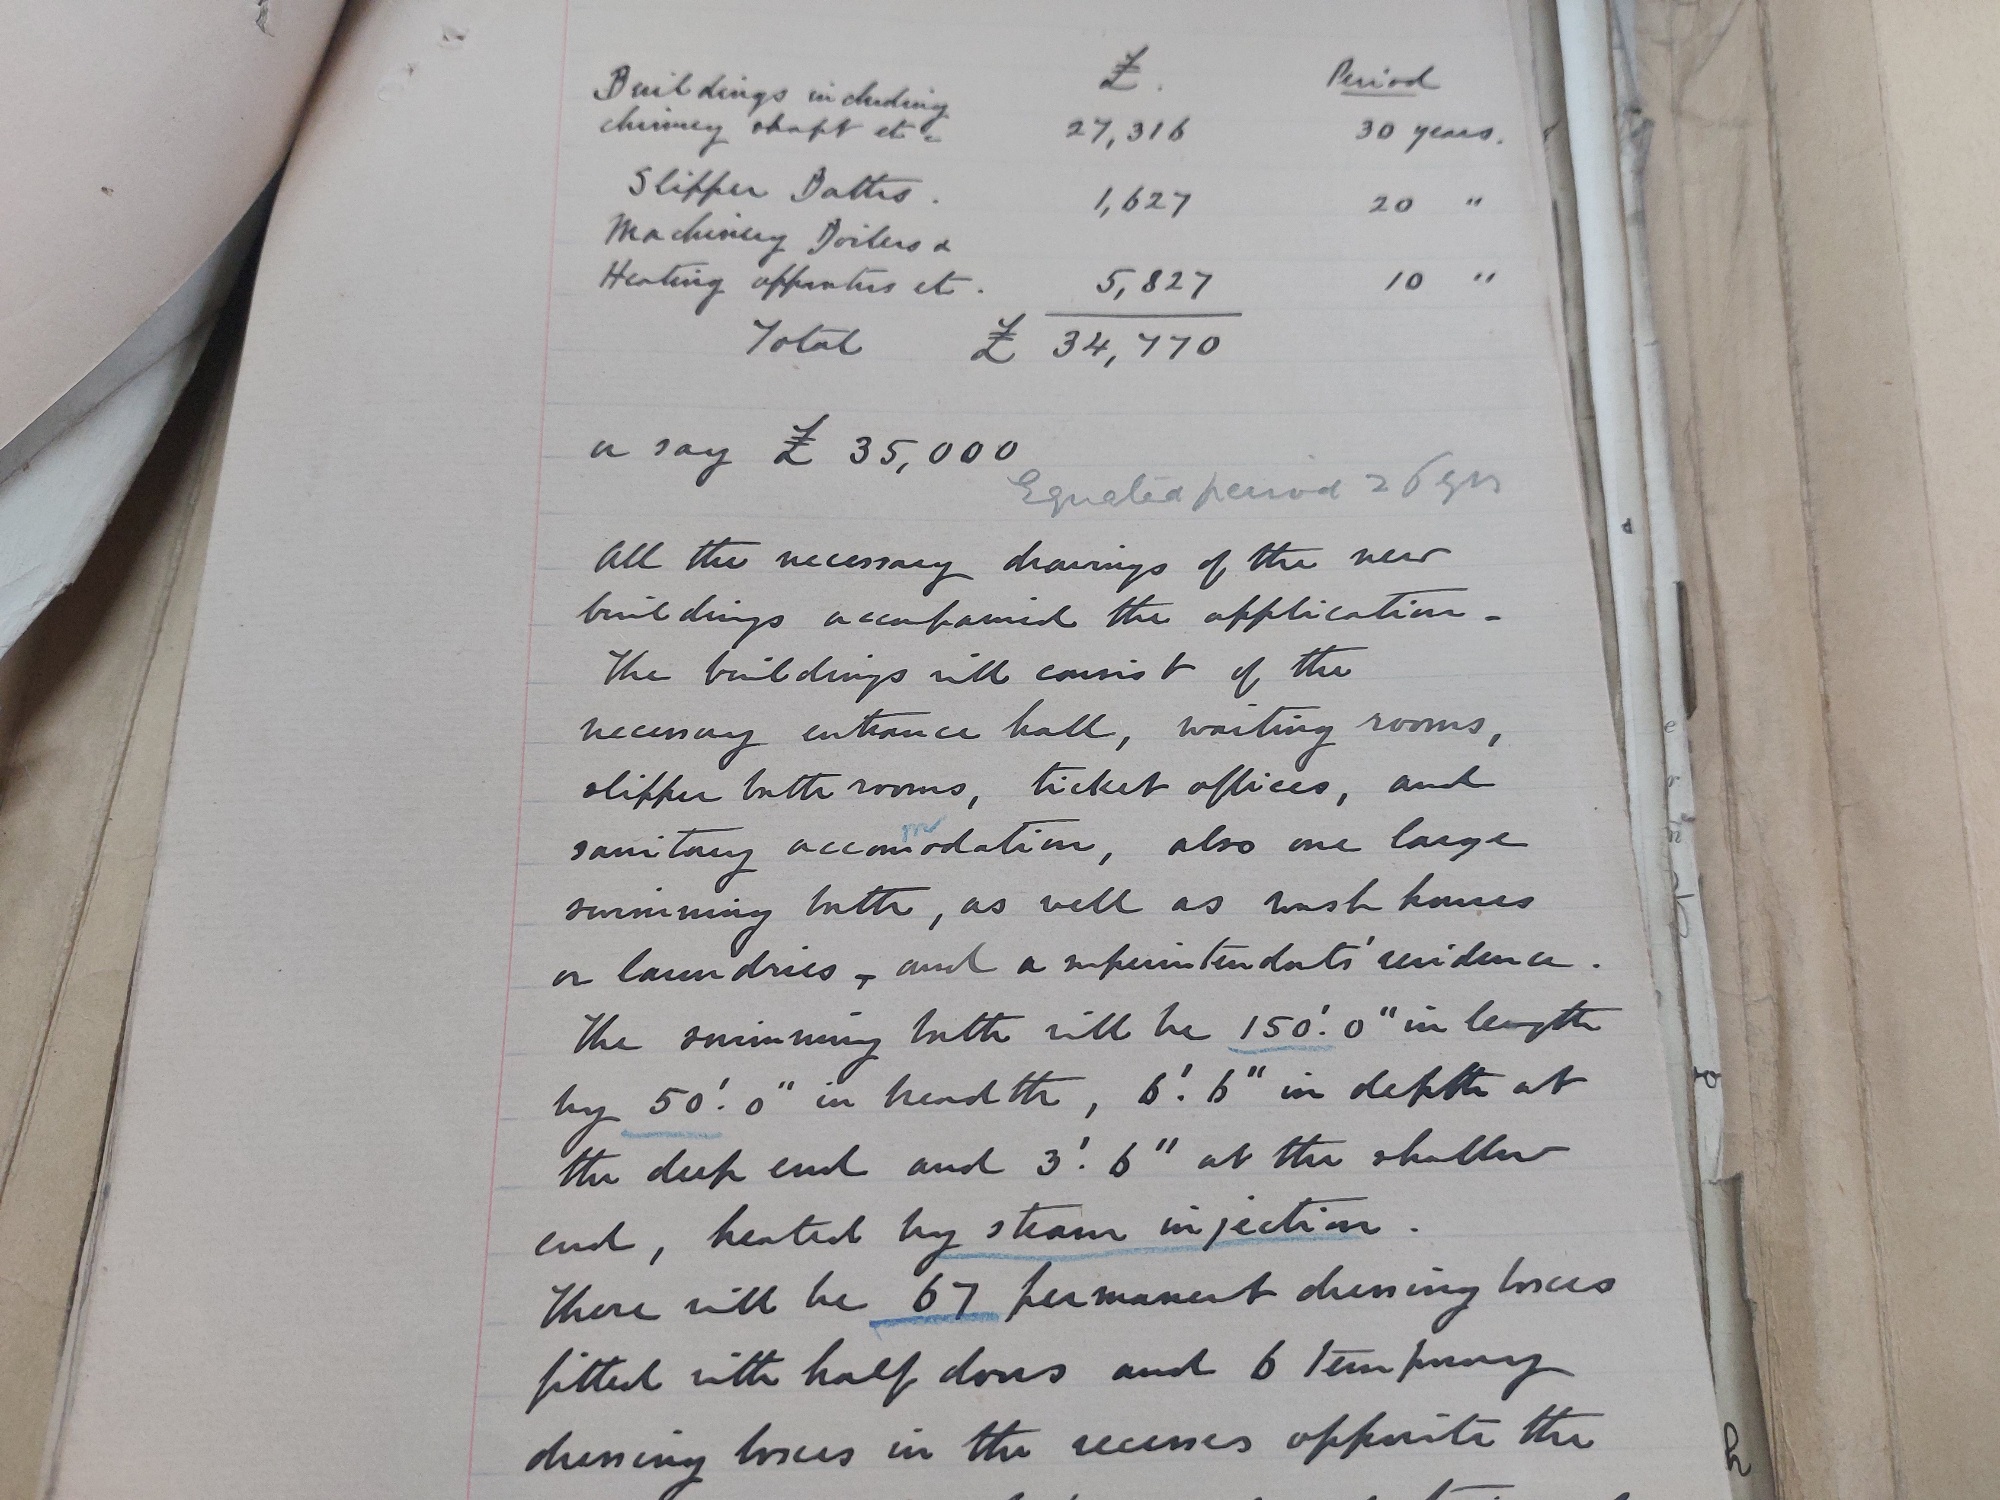 £. Period
Buildings including
chimney shaft etc 27,316 30 years.
Slipper Baths. 1,627 20 "
Machinery Boilers &
Heating apparatus etc. 5,827 10 "
Total £ 34,770
or say £ 35,000
Equated period 26 yrs
All the necessary drawings of the new
buildings accompanied the application.
The buildings will consist of the
necessary entrance hall, waiting rooms,
slipper bath rooms, ticket offices, and
m
sanitary accomodation, also one large
swimming bath, as well as wash houses
or laundries, and a superintendents' residence.
The swimming bath will be 150'. 0" in length
by 50'. 0" in breadth, 6'. 6" in depth at
the deep end and 3'. 6" at the shallow
end, heated by steam injection.
There will be 67 permanent dressing boxes
fitted with half doors and 6 temporary
dressing boxes in the recesses opposite the